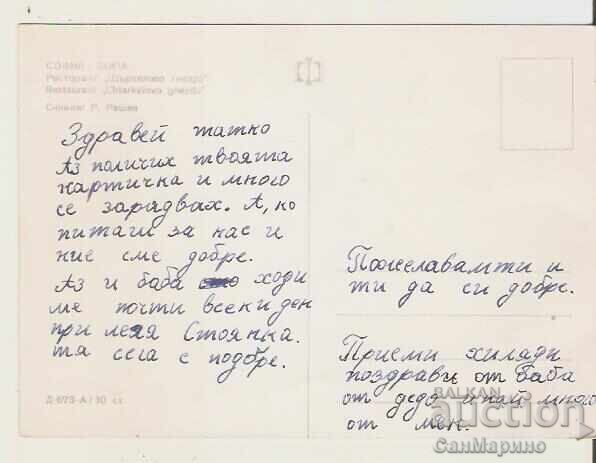 СОФИЯ - SOFIA
Ресторант „Щъркелово гнездо“
Restaurant „Chtarkelovo gnezdo“
Снимка: Р. Рашев
Здравей татко
Аз поличих твоята
картичка и много
се зарадвах. А, ко
питаш за нас и
ние сме добре.
Аз и баба ходи
ме почти всеки ден
при леля Стоянка.
тя сега е подобре.
Д-673-А / 10 ст.
Пожелавамти и
ти да си добре.
Приеми хиляди
поздрави от баба
от дядо и най много
от мен.
BALKAN
auction
СанМарино